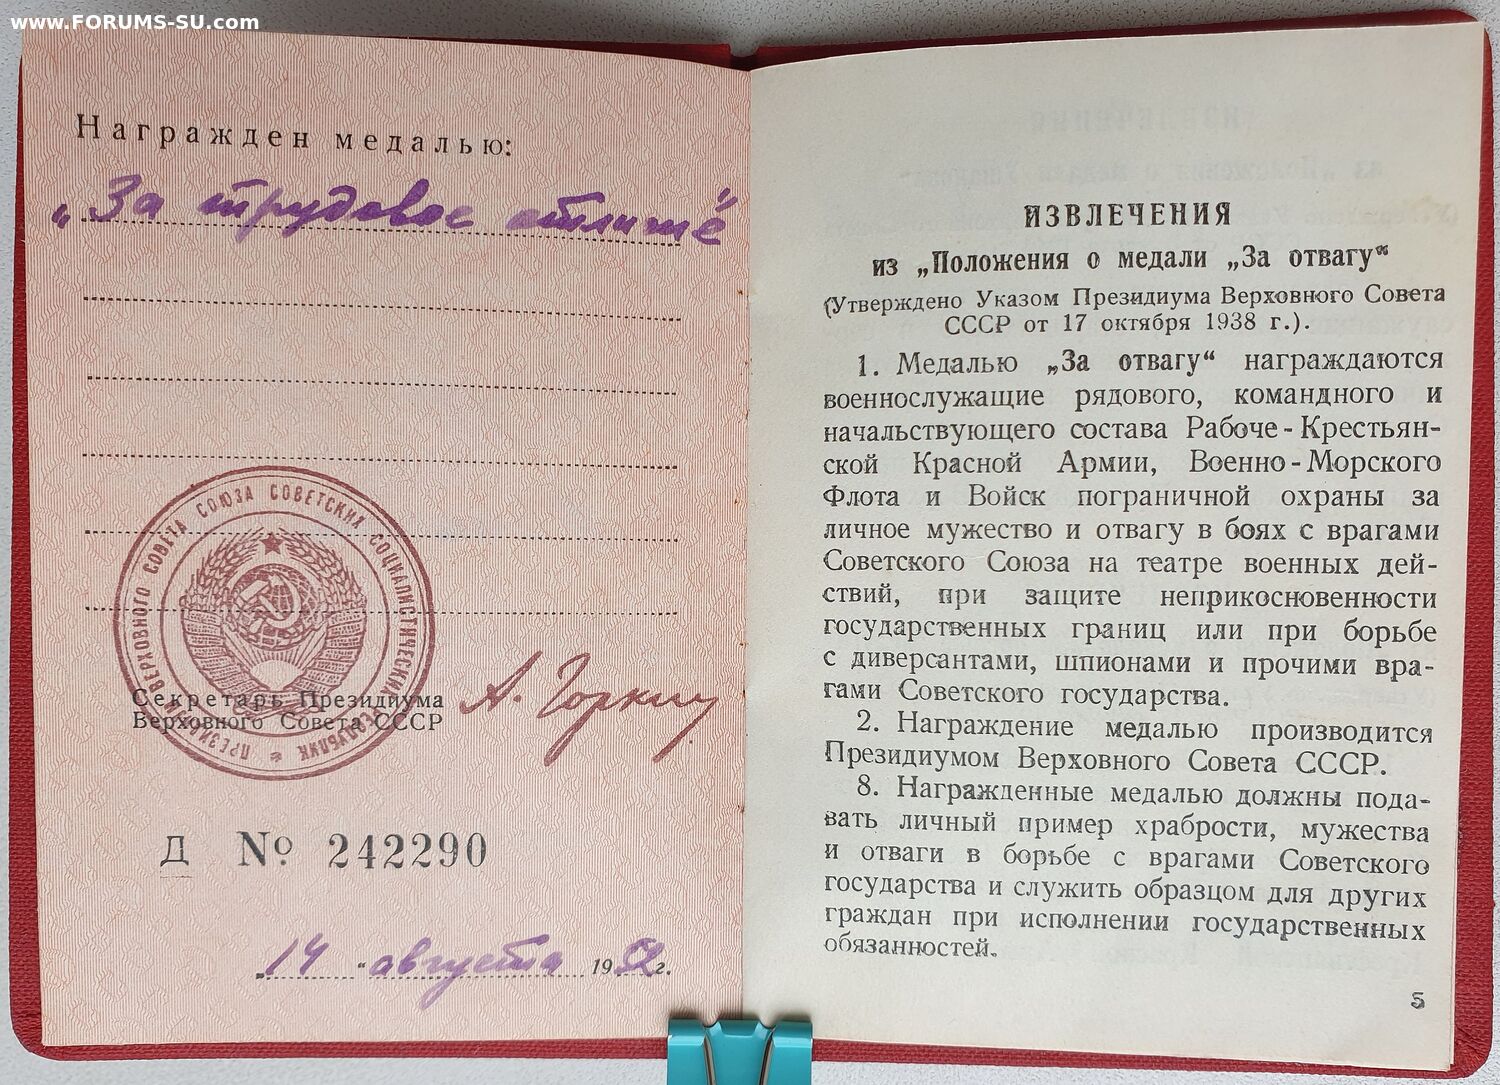 www.FORUMS-SU.com
Награжден медалью:
„За трудовое отличіе"
СОЮЗА СОВЕТСКИХ СОЦИАЛИСТИЧЕСКИХ РЕСПУБЛИК * ПРЕЗИДИУМ ВЕРХОВНОГО СОВЕТА
Секретарь Президиума
Верховного Совета СССР
А. Горкин
Д № 242290
„14 " августа 1952 г.
ИЗВЛЕЧЕНИЯ
из „Положения о медали „За отвагу“
(Утверждено Указом Президиума Верховного Совета
СССР от 17 октября 1938 г.).
1. Медалью „За отвагу“ награждаются
военнослужащие рядового, командного и
начальствующего состава Рабоче-Крестьян-
ской Красной Армии, Военно-Морского
Флота и Войск пограничной охраны за
личное мужество и отвагу в боях с врагами
Советского Союза на театре военных дей-
ствий, при защите неприкосновенности
государственных границ или при борьбе
с диверсантами, шпионами и прочими вра-
гами Советского государства.
2. Награждение медалью производится
Президиумом Верховного Совета СССР.
8. Награжденные медалью должны пода-
вать личный пример храбрости, мужества
и отваги в борьбе с врагами Советского
государства и служить образцом для других
граждан при исполнении государственных
обязанностей.
5